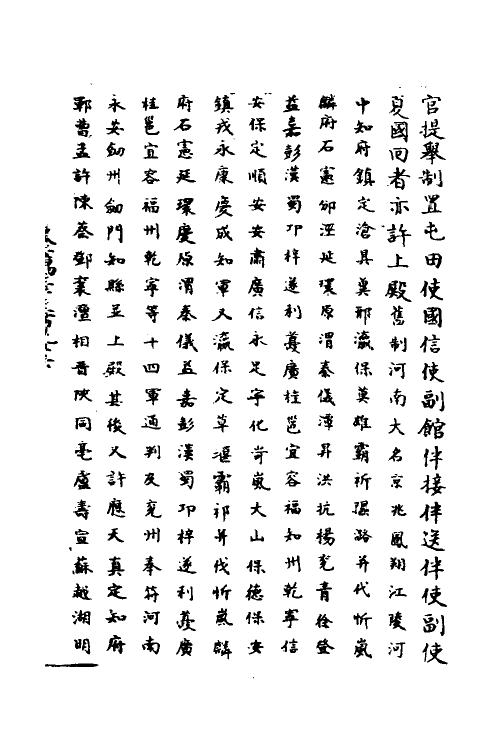 官提舉制置屯田使國信使副館伴接伴送伴使副使
夏國回者亦許上殿舊制河南大名京兆鳳翔江陵河
中知府鎮定滄具冀邢瀛保莫雄霸祈張潞并代忻嵐
麟府石憲邠涇延環原渭秦儀潭昇洪抗楊兖青徐登
益嘉彭漢蜀邛梓遂利蘷廣桂邕宜容福知州乾寧信
安保定順安安肅廣信永定寧化岢嵐大山保德保安
鎮戎永康慶成知軍又瀛保定草滬霸祁并伐忻嵐麟
府石憲延環慶原渭秦儀益嘉彭漢蜀邛梓遂利蘷廣
桂邕宜容福州乾寧等十四軍通判及兖州奉符河南
永安劒州劒門知縣並上殿其後又許應天真定知府
鄆曹孟許陳蔡鄧襄澶相晋陜同亳盧壽宣蘇越湖明